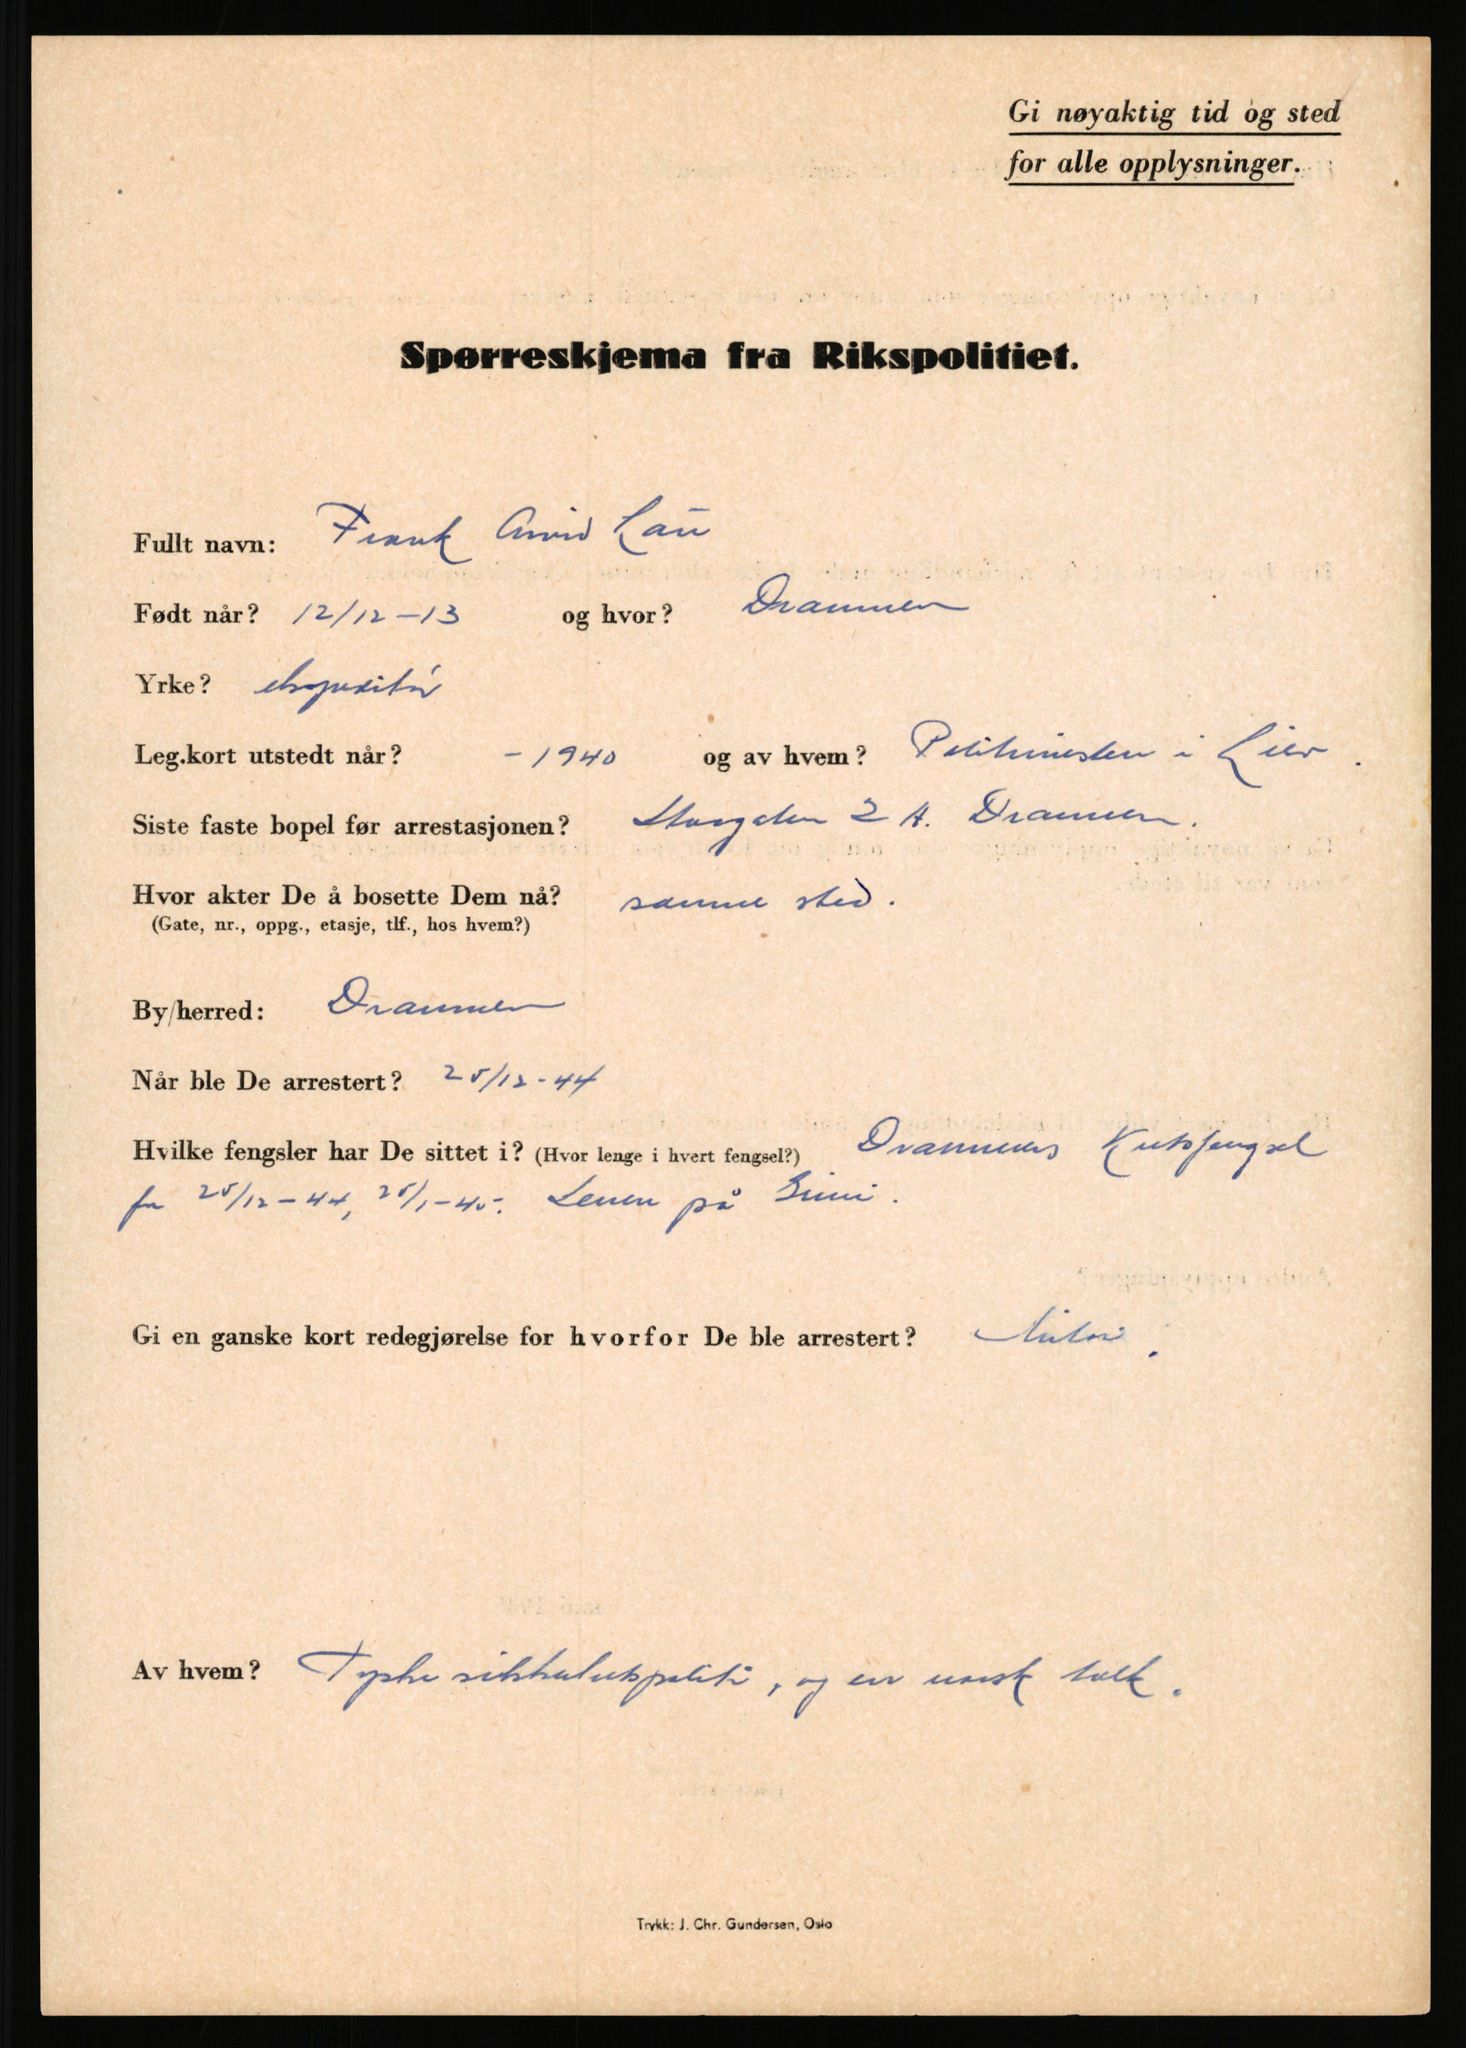 Gi nøyaktig tid og sted
for alle opplysninger.
Spørreskjema fra Rikspolitiet.
Fullt navn: Frank Arvid Lau
Født når? 12/12-13 og hvor? Drammen
Yrke? ekspeditør
Leg.kort utstedt når? -1940 og av hvem? Politimesteren i Lier.
Siste faste bopel før arrestasjonen? Storgaten 2 A. Drammen.
Hvor akter De å bosette Dem nå? samme sted.
(Gate, nr., oppg., etasje, tlf., hos hvem?)
By/herred: Drammen
Når ble De arrestert? 25/12-44
Hvilke fengsler har De sittet i? (Hvor lenge i hvert fengsel?) Drammens Kretsfengsel
fra 25/12-44, 25/1-45. på Grini.
Gi en ganske kort redegjørelse for hvorfor De ble arrestert?
Av hvem? Tyske sikkerhetspoliti, og en norsk tolk.
Trykk: J. Chr. Gundersen, Oslo